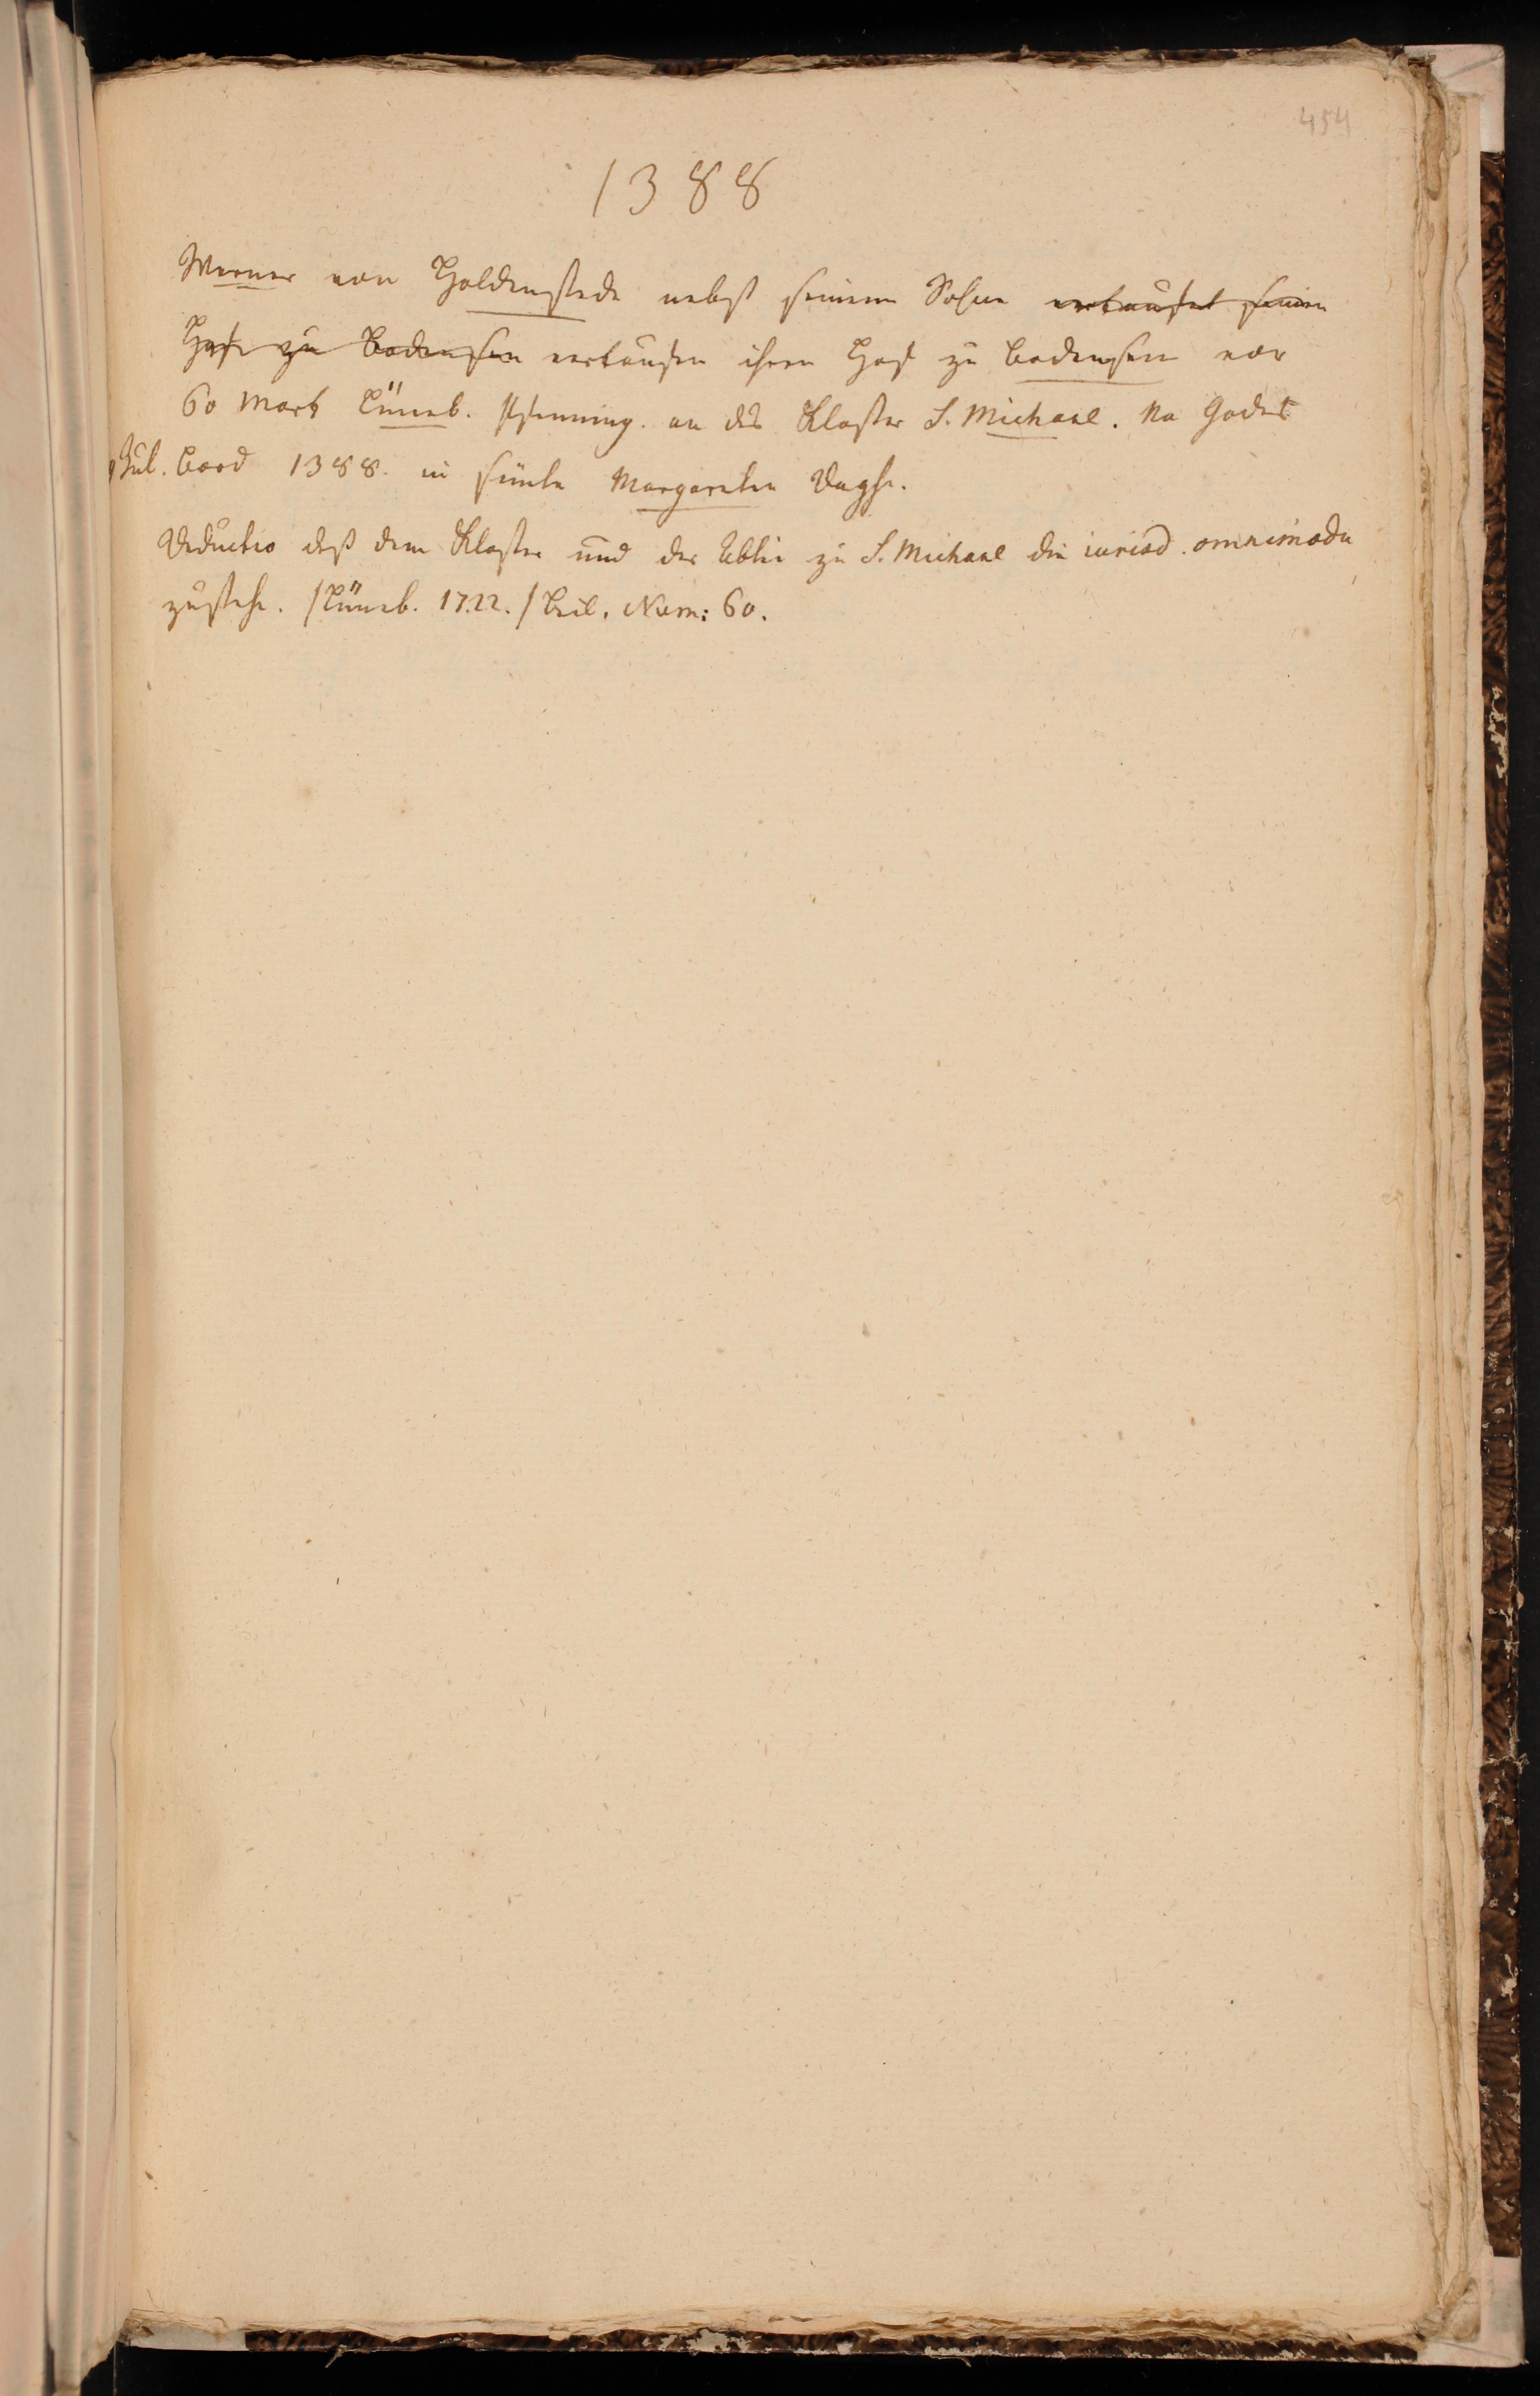 454
1388
Werner von Holdenstede nebst seinem Sohne verkaufet seinen
Hofe zu Bodensen verkaufen ihren Hof zu Bodensen vor
60 Mark Lüneb. Pfenning. an das Kloster S. Michael. Na Godes
Bord 1388. in sünte Margareten Daghe.
Deductio daß dem Kloster und der Abtei zu S. Michael die iurisd. omnimoda
zustehe. /Lüneb. 1722./ Beil. Num: 60.